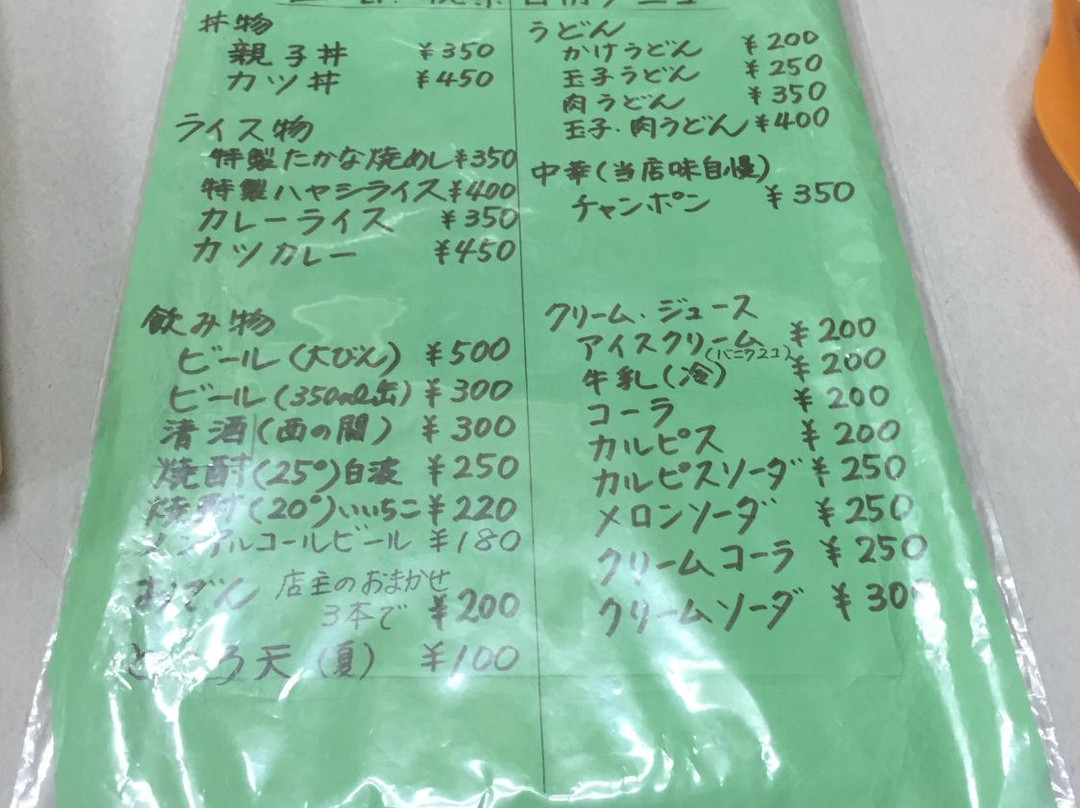 丼物
親子丼 ¥350
カツ丼 ¥450
ライス物
特製たかな焼めし ¥350
特製ハヤシライス ¥400
カレーライス ¥350
カツカレー ¥450
飲み物
ビール(大びん) ¥500
ビール(350ml缶) ¥300
清酒(西の関) ¥300
焼酎(25°)白波 ¥250
焼酎(20°)いいちこ ¥220
ノンアルコールビール ¥180
おでん 店主のおまかせ
3本で ¥200
ところ天(夏) ¥100
うどん
かけうどん ¥200
玉子うどん ¥250
肉うどん ¥350
玉子・肉うどん ¥400
中華(当店味自慢)
チャンポン ¥350
クリーム・ジュース
アイスクリーム ¥200
牛乳(冷) ¥200
コーラ ¥200
カルピス ¥200
カルピスソーダ ¥250
メロンソーダ ¥250
クリームコーラ ¥250
クリームソーダ ¥300